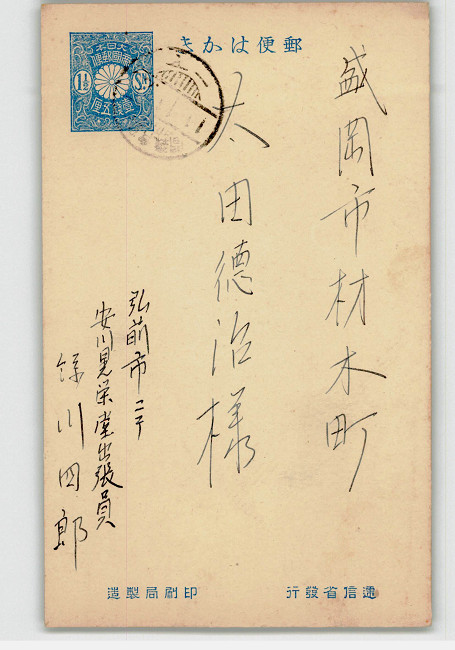 郵便はかき
大日本
帝國郵便
1½ Sn
壹錢五厘
盛岡市材木町
太田德治様
弘前市ニテ
安川見栄堂出張員
川四郎
逓信省發行
印刷局製造